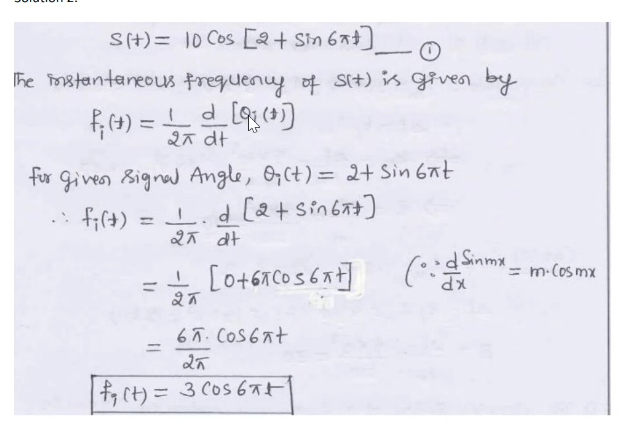 Solution 2:
S(t) = 10 Cos [2 + Sin 6πt] — ①
The instantaneous frequency of S(t) is given by
fi(t) = 1/2π d/dt [θi(t)]
for given Signal Angle, θi(t) = 2 + Sin 6πt
∴ fi(t) = 1/2π . d/dt [2 + Sin 6πt]
= 1/2π [0 + 6π Cos 6πt] (∵ d/dx Sin mx = m. Cos mx
= 6π. Cos 6πt / 2π
fi(t) = 3 Cos 6πt